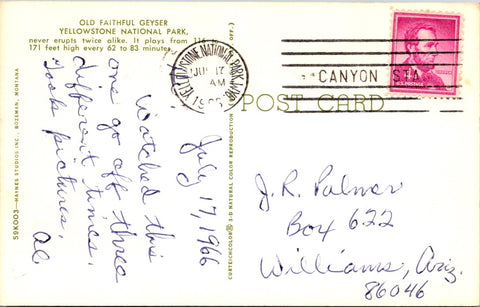 OLD FAITHFUL GEYSER
YELLOWSTONE NATIONAL PARK,
never erupts twice alike. It plays from 116
171 feet high every 62 to 83 minutes
OFF.)
YELLOWSTONE NATIONAL PARK, WYO.
JUL 17
AM
1966
CANYON STA.
POST CARD
59K003—HAYNES STUDIOS INC., BOZEMAN, MONTANA
CURTEICHCOLOR® 3-D NATURAL COLOR REPRODUCTION
July 17, 1966
Watched this
one go off three
different times.
Took pictures.
Al.
J.R. Palmer
Box 622
Williams, Ariz.
86046